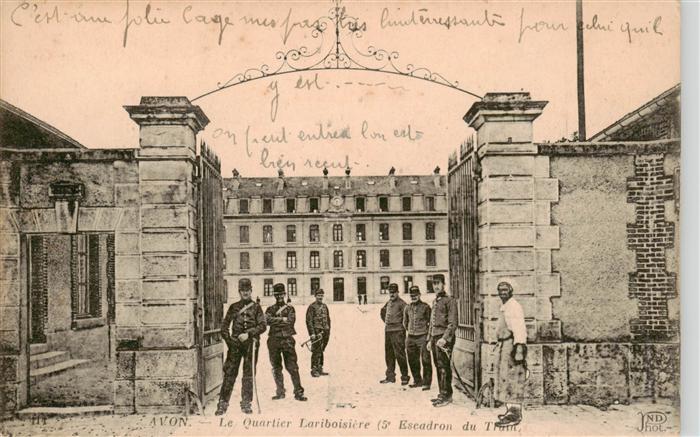 C'est une jolie Cage mes pas très lintérressante pour celui qu'il
y est.
on peut entrée l'on est
bien reçut.
111 AVON. - Le Quartier Lariboisière (5e Escadron du Train.
ND
Phot.